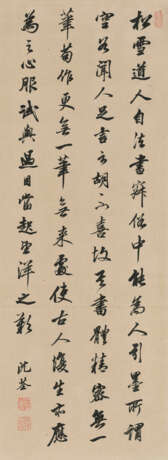 松雪道人自法書辟俗中能為人引墨所謂
空谷聞人足音之胡不喜故其書體精密無一
筆苟作更無一筆無來處使古人復生亦應
為之心服試與過目當起望洋之歎
沈荃